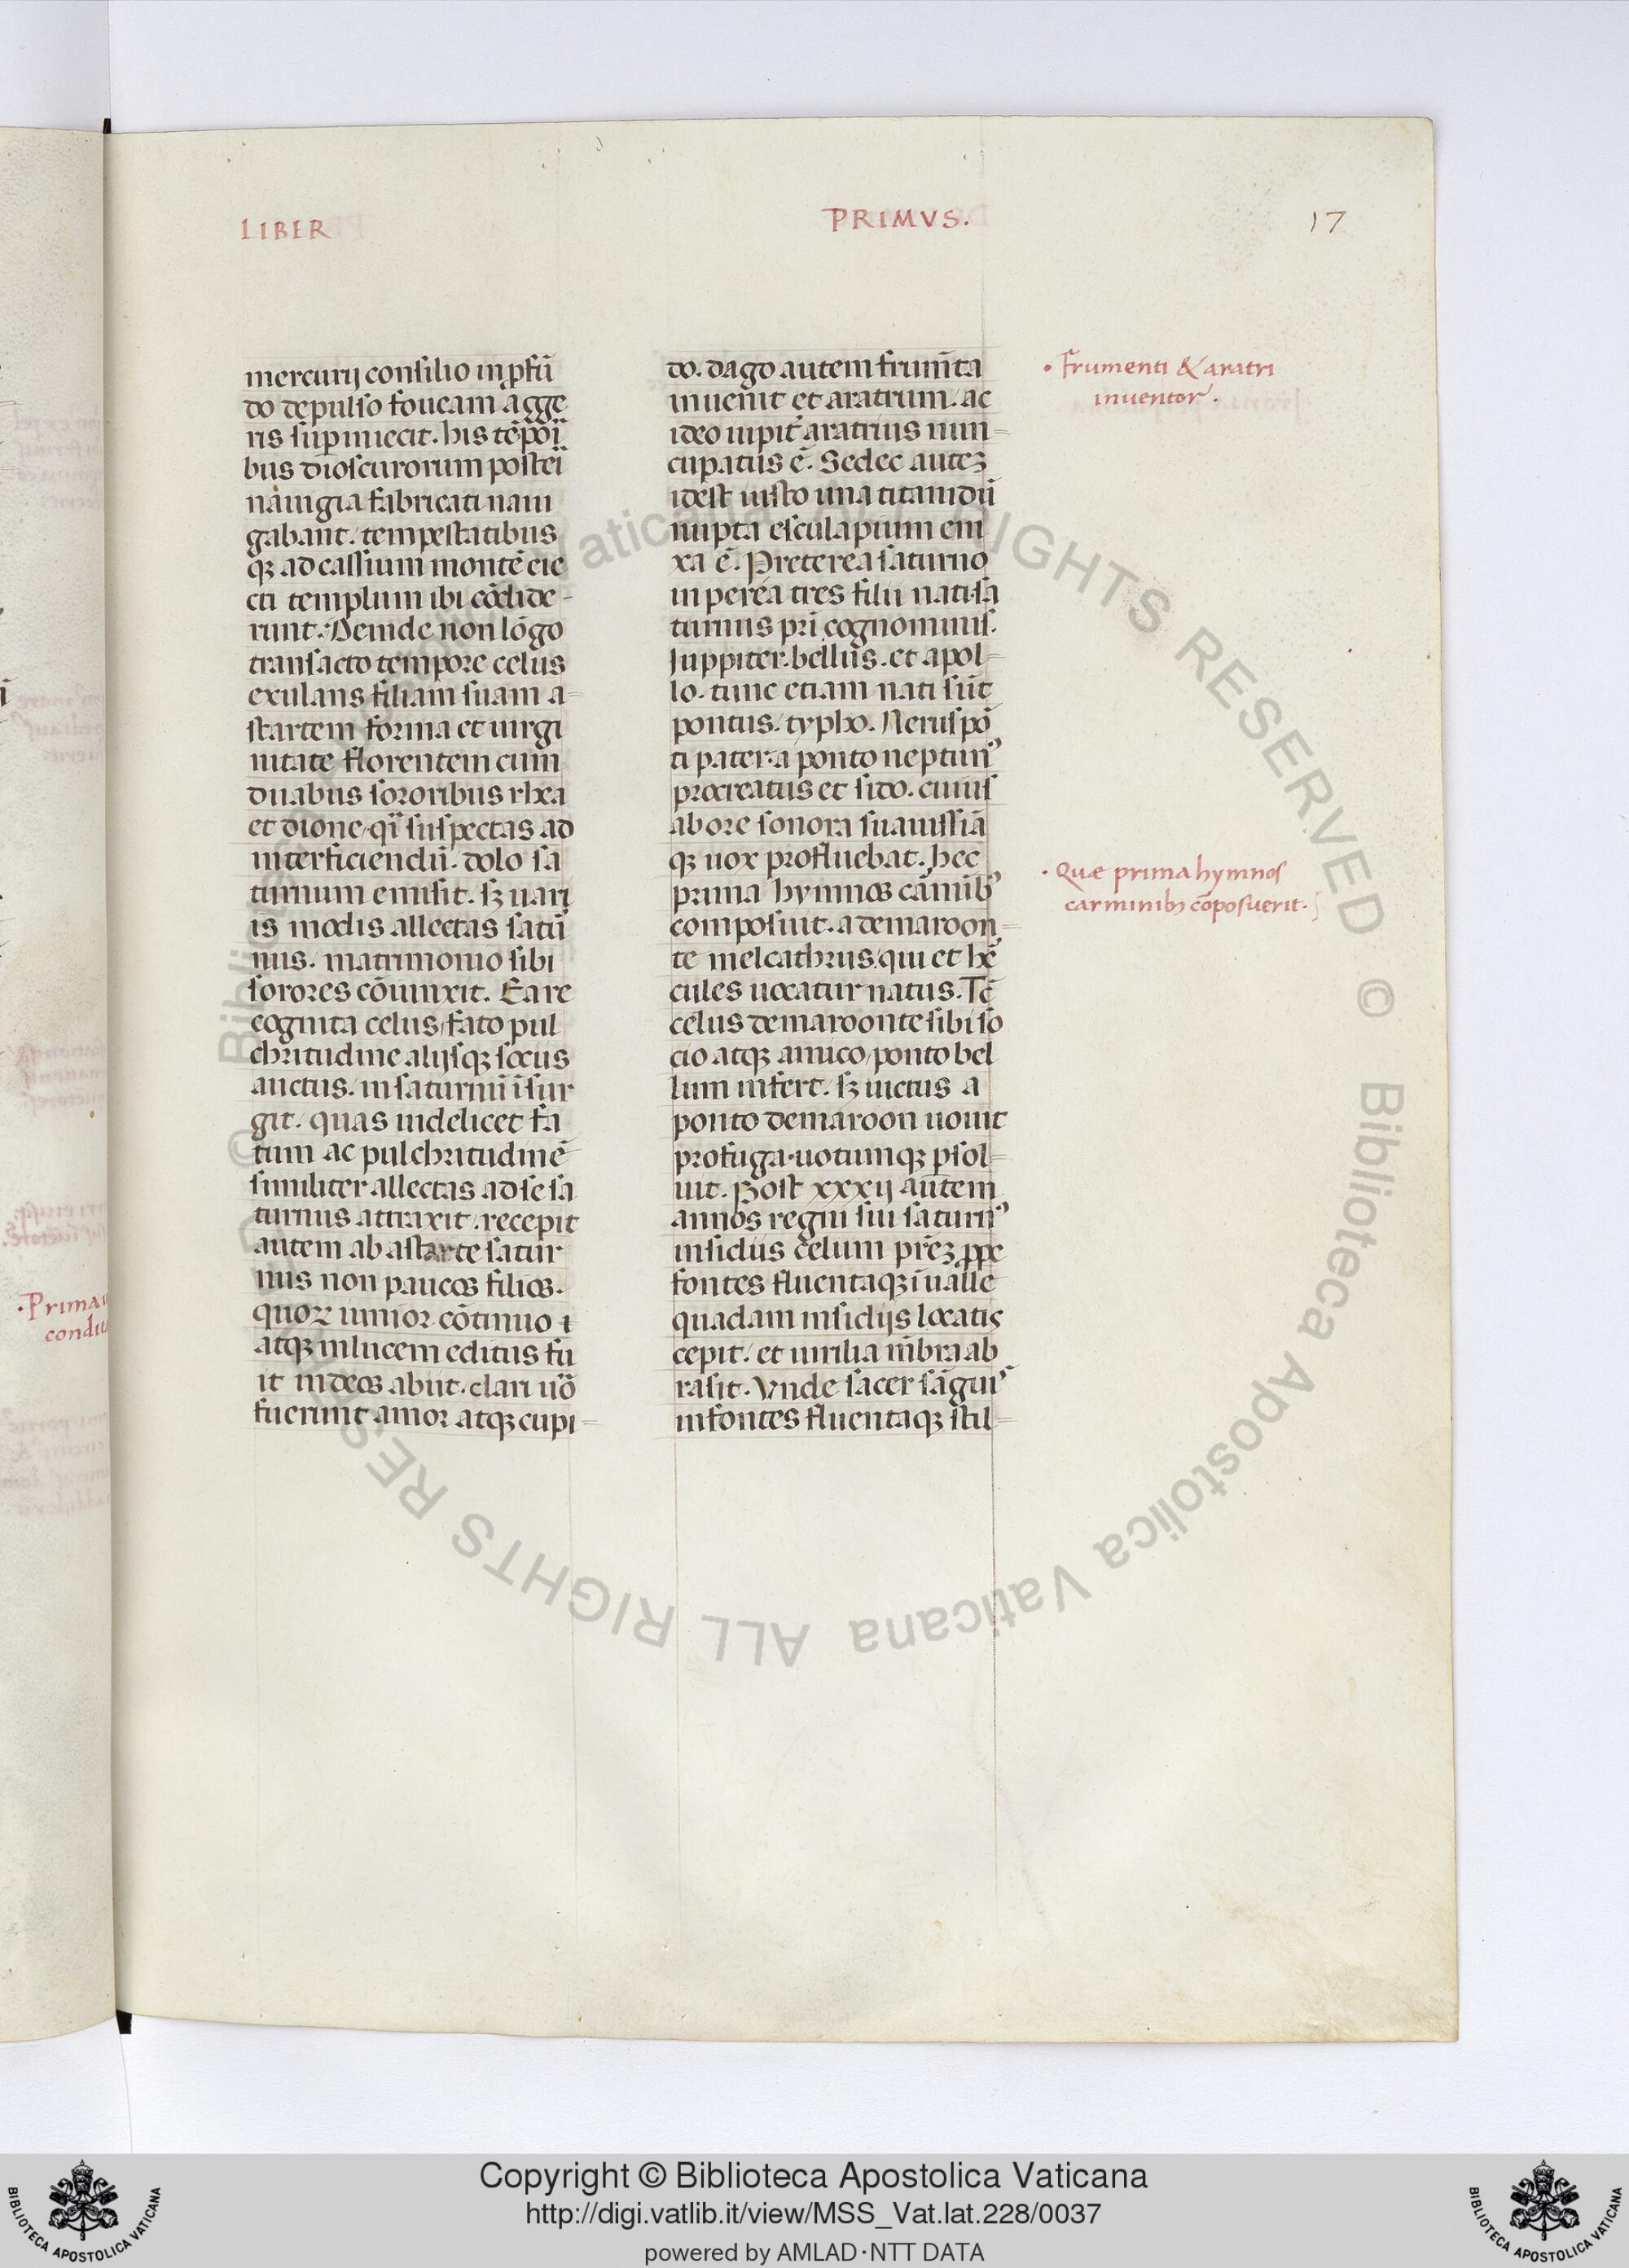 LIBER
PRIMVS.
17
mercurij consilio in ꝓfū
do depulso foueam agge
ris suꝑiniecit. his tēpoꝝ
bus dioscurorum posteri
nauigia fabricati naui
gabant. tempestatibus
qꝫ ad cassium montē eie
cti templum ibi cōdide-
runt. Deinde non lōgo
transacto tempore celus
exulans filiam suam a=
startem forma et uirgi
nitate florentem cum
duabus sororibus rhea
et dione, qī suspectas ad
interficiendū. dolo sa
turnum emisit. sꝫ uari
is modis allectas satū
nus. matrimonio sibi
sorores cōiunxit. Ea re
cognita celus, fato pul
chritudine alijsqꝫ sociis
auctus. in saturnū īsur
git. quas uidelicet fa
tum ac pulchritudinē
similiter allectas ad se sa
turnus attraxit. recepit
autem ab astarte satur
nus non paucos filios.
quoꝝ iunior cōtinuo ı
atqꝫ in lucem editus fu
it in deos abiit. clari uō
fuerunt amor atqꝫ cupi=
do. dago autem frumēta
inuenit et aratrum. ac
ideo iupit̄ aratrius nun=
cupatus ē. Sedec autez
idest iusto una titanidū
nupta esculapium eni
xa ē. Preterea saturno
in perea tres filii nati. sa
turnus pr̄i cognominis.
Juppiter. bellus. et apol=
lo. tunc etiam nati sūt
pontus. typho. Nerus pō
ti pater. a ponto neptunꝰ
procreatus et sido. cuius
ab ore sonora suauissīa
qꝫ uox profluebat. hec
prima hymnos cāminibꝰ
composuit. a demaroon=
te melcathrus, qui et hē
cules uocatur natus. Tc̄
celus demaroonte sibi so
cio atqꝫ amico, ponto bel
lum infert. sꝫ uictus a
ponto demaroon uouit
pro fuga. uotumqꝫ ꝑsol=
uit. Post xxxij autem
annos regni sui saturnꝰ
insidiis celum prēz ꝓpe
fontes fluentaqꝫ ī ualle
quadam insidijs locatis
cepit. et uirilia mēbra ab
rasit. Vnde sacer sāguis
in fontes fluentaqꝫ stil=
· Frumenti & aratri
inuentor.
· Quæ prima hymnos
carminibꝫ cōposuerit.
· Prima
condit
Copyright © Biblioteca Apostolica Vaticana
http://digi.vatlib.it/view/MSS_Vat.lat.228/0037
powered by AMLAD·NTT DATA
BIBLIOTECA APOSTOLICA VATICANA
BIBLIOTECA APOSTOLICA VATICANA
© Biblioteca Apostolica Vaticana ALL RIGHTS RESERVED © Biblioteca Apostolica Vaticana ALL RIGHTS RESERVED